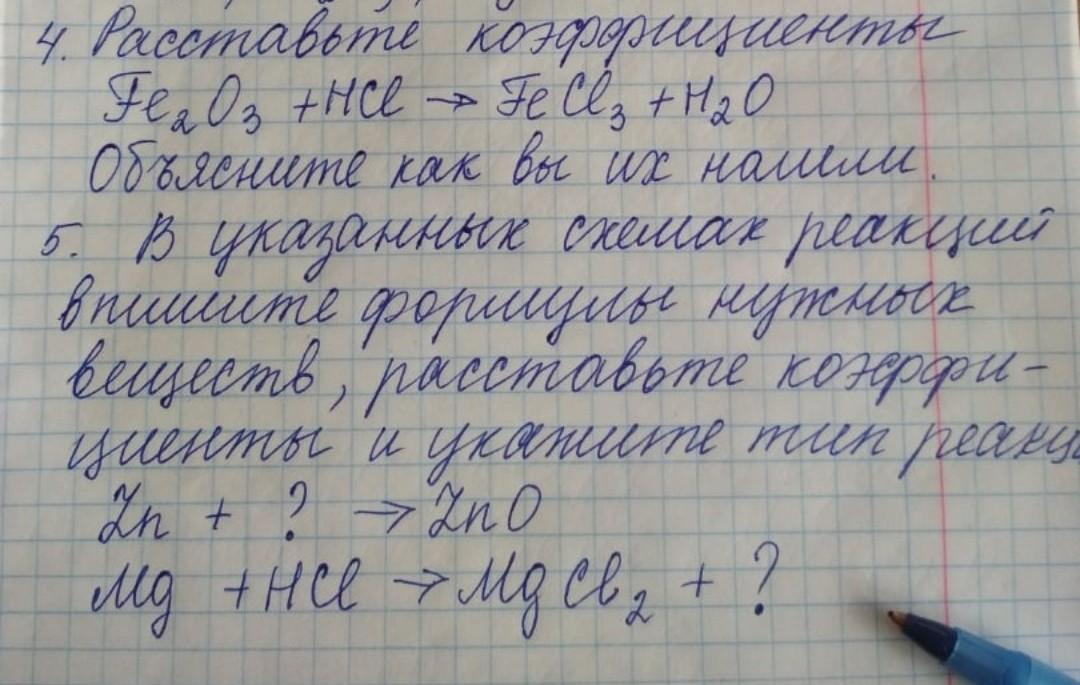 4. Расставьте коэффициенты
Fe₂O₃ + HCl → FeCl₃ + H₂O
Объясните как вы их нашли.
5. В указанных схемах реакций
впишите формулы нужных
веществ, расставьте коэффи-
циенты и укажите тип
Zn + ? → ZnO
Mg + HCl → MgCl₂ + ?